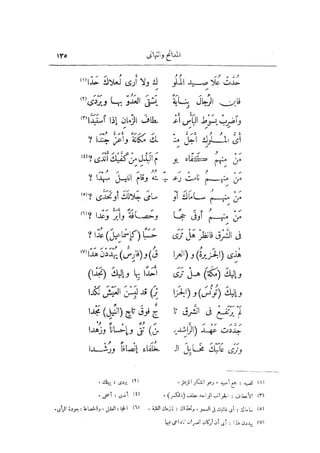 المدائح والتهانى
١٣٥
حُدَّتْ عُلا صِيد الملو ك ولا أرى لعلاك حَدَّا (١)
فابن الرجال بنايةً يشقى العدوّ بها ويردى (٢)
واضرب بسَوط البأس أعـ طاف الزمان إذا استبدّا (٣)
أىُّ الملوك أجلّ منـ ك مكانة وأعزّ جُندا ؟
مَن منهمُ كفّاه يو م البذل من كفّيك أندى ؟ (٤)
مَن منهمُ نامت رعيّـ ته وقام الليل سُهدا ؟
مَن منهمُ ساماك أو سامى جلالك أو تحدّى ؟ (٥)
مَن منهمُ أوفى حجًا وحصافة وأبرّ وعدا ؟ (٦)
فى الشرق فانظر هل ترى حسبًا (كإسماعيل) عُدّا ؟
هذى (الجزيرة) و (العرا ق) و (فارس) يُهددن هدّا (٧)
وإليك (مكة) هل ترى أحدا بها وإليك (نجدا)
وإليك (تونس) و (الجزا ئر) قد لبسن العيش نكدا
لم يرتفع فى الشرق تا ج فوق تاج (النيل) مجدا
جدّدت عهد (الراشديـ ن) تُقًى وإحسانًا وزهدا
وترى عليك مخايل الـ خلفاء إنصافًا ورشدا
(١) الصيد : جمع أصيد ، وهو الملك
(٢) يردى : يهلك .
(٣) الأعطاف : الجوانب الواحد عطف (بالكسر) .
(٤) أندى :
(٥) ساماك : أى غالبك فى السمو ، وتحداك : نازعك الغلبة .
(٦) الحجا : العقل ، والحصافة : جودة الرأى .
(٧) يهددن هدا : أى أن أركان